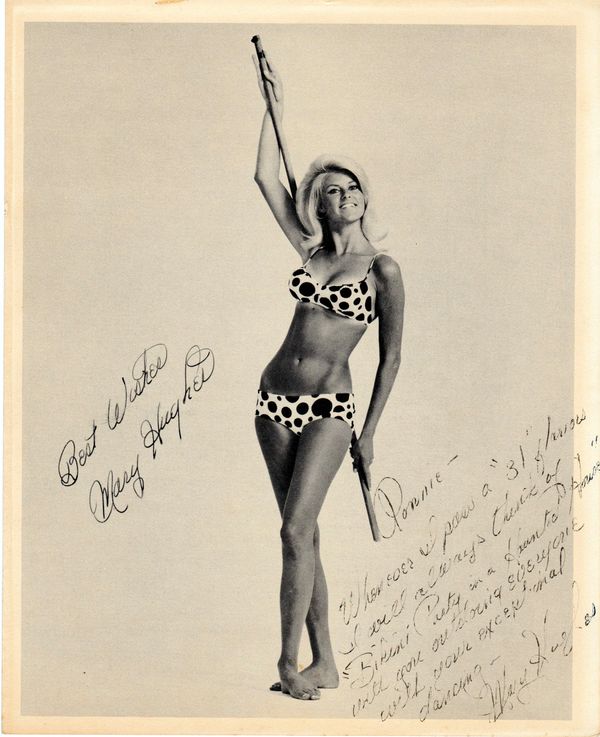 Best Wishes
Mary Hughes
Ronnie —
Whenever I pass a "31" Flavors
I will always think of
"Bikini Party in a Haunted House"
will you outdoing everyone
with your exceptional
dancing —
Mary Hughes